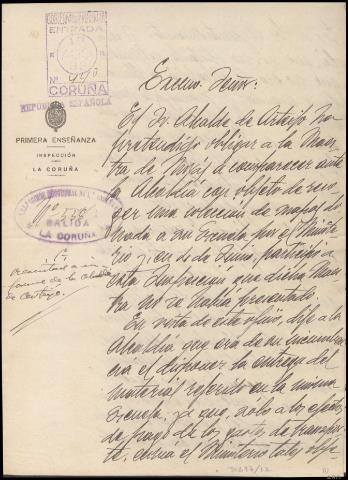 ENTRADA
Nº 490
CORUÑA
REPÚBLICA ESPAÑOLA
PRIMERA ENSEÑANZA
INSPECCIÓN
LA CORUÑA
SALIDA
LA CORUÑA
de Arteijo.
Excmo. Señor:
El Sr. Alcalde de Arteijo ha
pretendido obligar a la Maes-
tra de a comparecer ante
la Alcaldía con objeto de reco-
ger una colección de mapas do-
nada a su Escuela por el Minis-
terio, y en de Junio, participó a
esta Inspección que dicha Maes-
tra no se había presentado.
En vista de este oficio, dije a la
Alcaldía que era de su incumben-
cia el disponer la entrega del
material referido en la misma
Escuela, ya que, sólo a los efectos
de pago de los gastos de transpor-
te, el Ministerio tales obje-